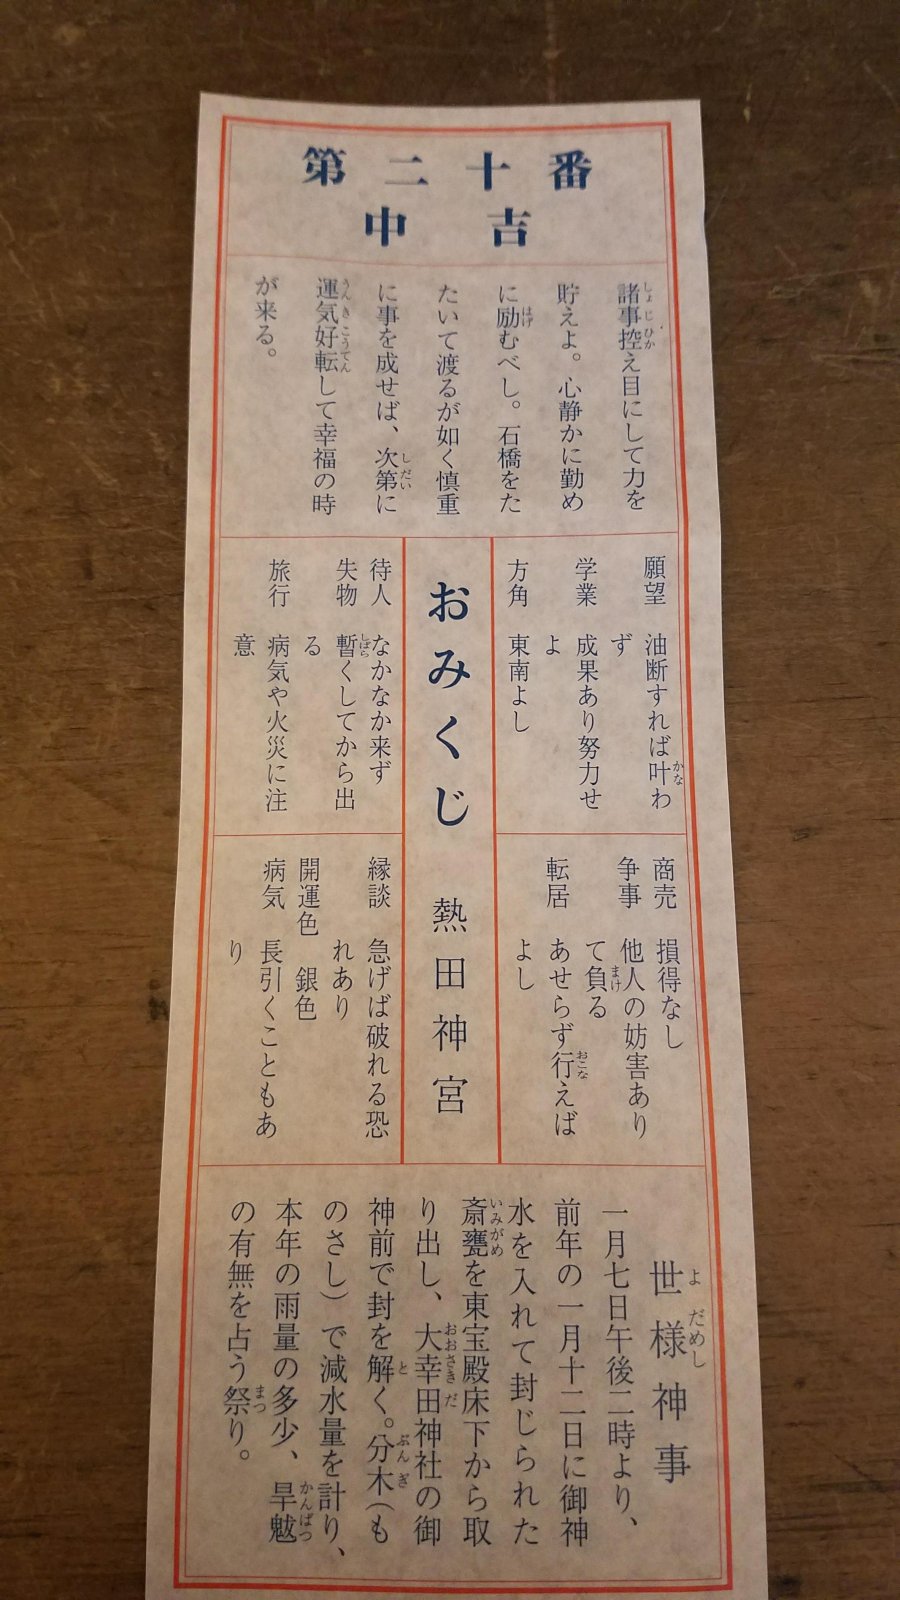 第二十番
中吉
諸事控え目にして力を
貯えよ。心静かに勤め
に励むべし。石橋をた
たいて渡るが如く慎重
に事を成せば、次第に
運気好転して幸福の時
が来る。
願望 油断すれば叶わ
ず
学業 成果あり努力せ
よ
方角 東南よし
商売 損得なし
争事 他人の妨害あり
て負る
転居 あせらず行えば
よし
おみくじ 熱田神宮
待人 なかなか来ず
失物 暫くしてから出
る
旅行 病気や火災に注
意
縁談 急げば破れる恐
れあり
開運色 銀色
病気 長引くこともあ
り
世様神事
一月七日午後二時より、
前年の一月十二日に御神
水を入れて封じられた
斎甕を東宝殿床下から取
り出し、大幸田神社の御
神前で封を解く。分木(も
のさし)で減水量を計り、
本年の雨量の多少、旱魃
の有無を占う祭り。